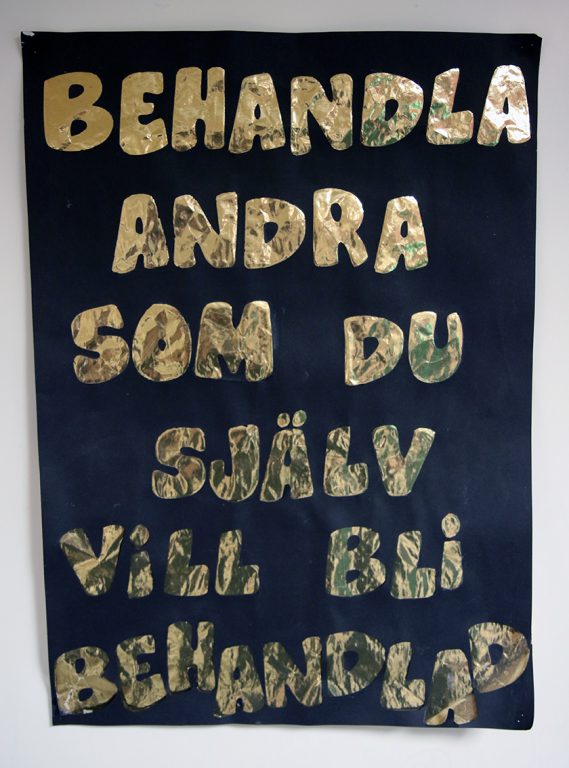 BEHANDLA
ANDRA
SOM DU
SJÄLV
ViLL BLi
BEHANDLAD